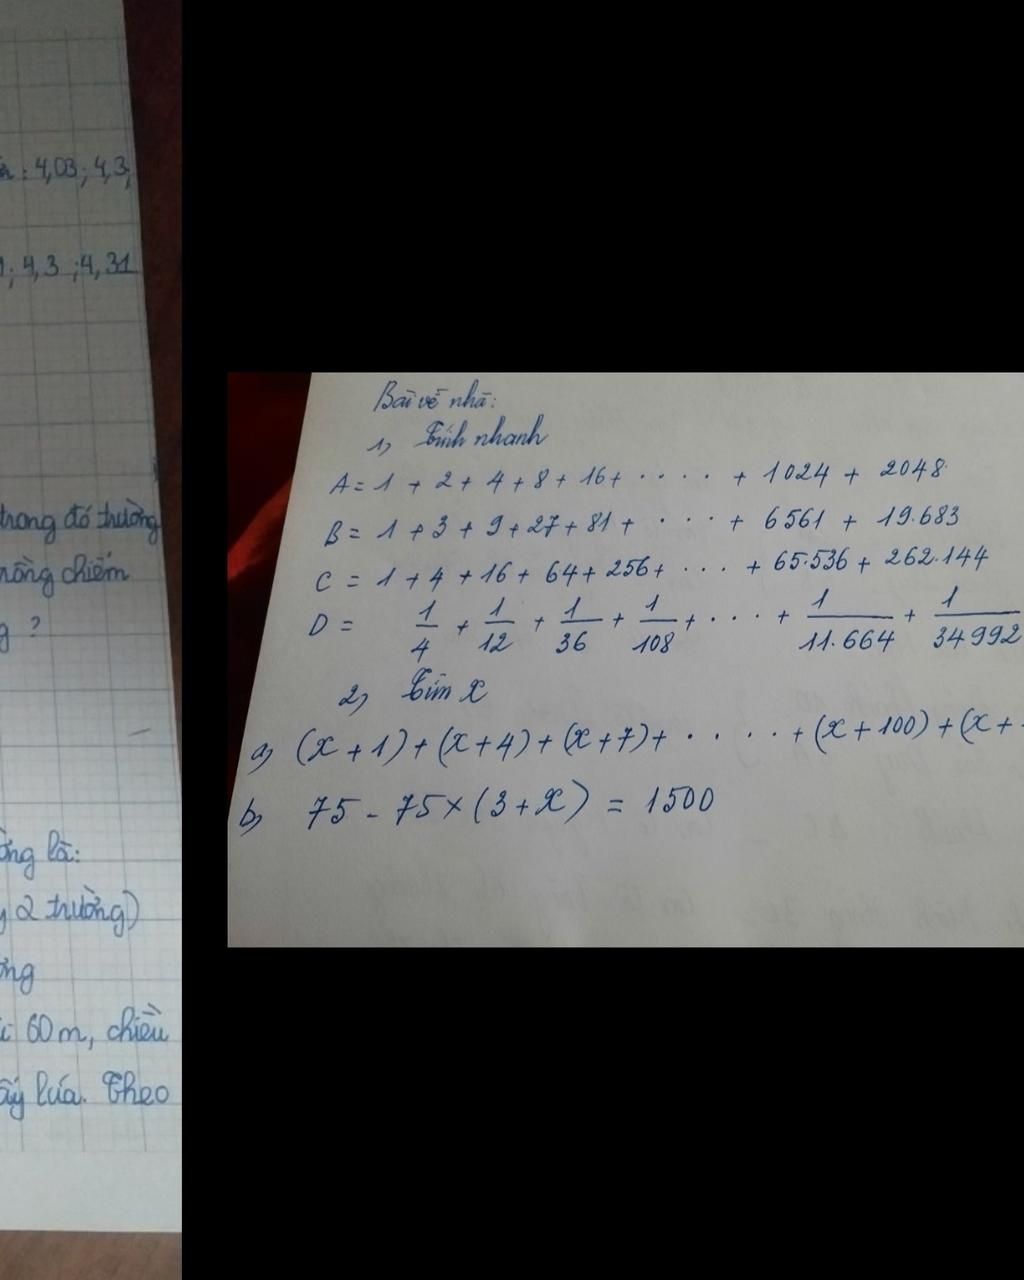 : 4,03; 4,3;
; 4,3 ; 4,31
trong đó trường
chiếm
?
là:
2 trường)
60 m, chiều
lúa. Theo
Bài về nhà:
1) Tính nhanh
A = 1 + 2 + 4 + 8 + 16 + .... + 1024 + 2048
B = 1 + 3 + 9 + 27 + 81 + .... + 6561 + 19.683
C = 1 + 4 + 16 + 64 + 256 + .... + 65.536 + 262.144
D = 1/4 + 1/12 + 1/36 + 1/108 + .... + 1/11.664 + 1/34992
2) Tìm x
a) (x + 1) + (x + 4) + (x + 7) + ..... + (x + 100) + (x +
b) 75 - 75 × (3 + x) = 1500